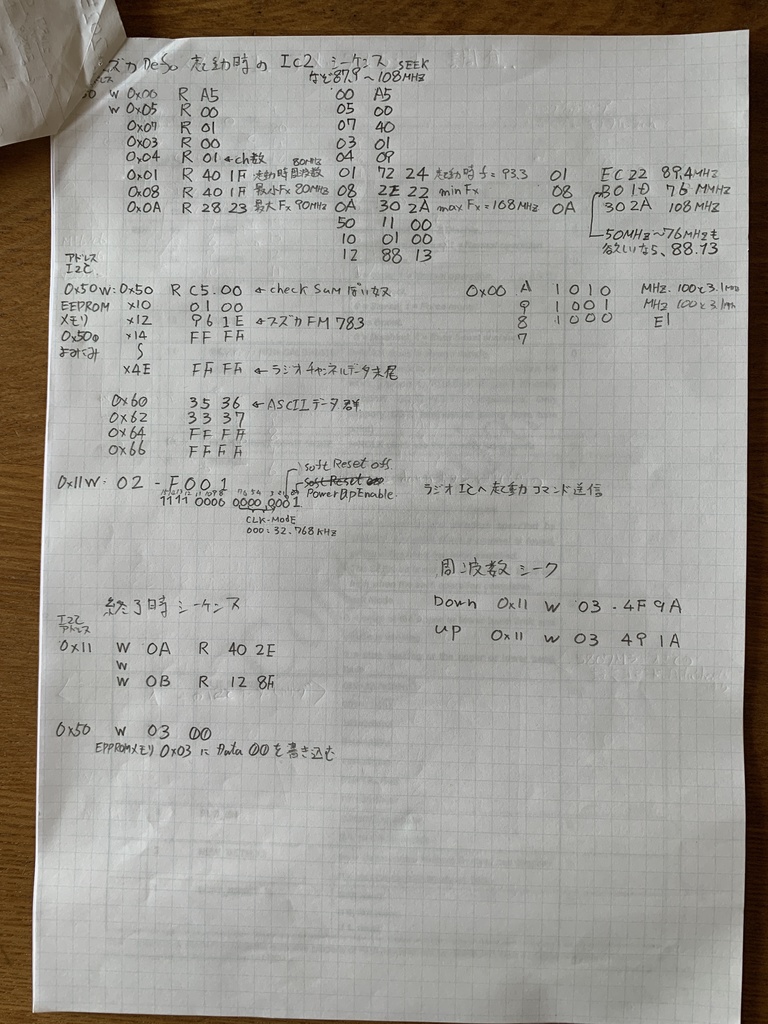 ズカDeSo 起動時の IC2 シーケンス SEEK
など87.9～108MHz
W 0x00 R A5 00 A5
W 0x05 R 00 05 00
0x07 R 01 07 40
0x03 R 00 03 01
0x04 R 01 ←ch数 80MHz 04 09
0x01 R 40 1F 起動時周波数 01 72 24 起動時 f=93.3 01 EC 22 89.4MHz
0x08 R 40 1F 最小Fx 80MHz 08 2E 22 min Fx 08 B0 1D 76 MHz
0x0A R 28 23 最大Fx 90MHz 0A 30 2A max Fx=108MHz 0A 30 2A 108MHz
50 11 00
10 01 00
12 88 13
50MHz～76MHzも
欲しいなら、88.13
アドレス
I2C
0x50W:0x50 R C5.00 ←check Sum ぽい奴
EEPROM x10 01 00
メモリ x12 961E ←スズカFM 783
0x50の x14 FF FF
よみこみ S
x4E FF FF ←ラジオチャンネルデータ末尾
0x00 A 1010 MHz. 100と3.1MHz
9 1001 MHz 100と3.1
8 1000 E1
7
0x60 35 36 ←ASCIIデータ群
0x62 33 37
0x64 FF FF
0x66 FF FF
0x11W: 02 - F001
soft Reset off.
PowerUpEnable.
1111 0000 0000,0001
CLK-MODE
000:32.768KHz
ラジオICへ起動コマンド送信
終了時シーケンス
I2C
アドレス
0x11 W 0A R 40 2E
W
W 0B R 12 8F
0x50 W 03 00
EPPROMメモリ 0x03 に Data 00を書き込む
周波数シーク
Down 0x11 W 03 . 4F 9A
UP 0x11 W 03 49 1A